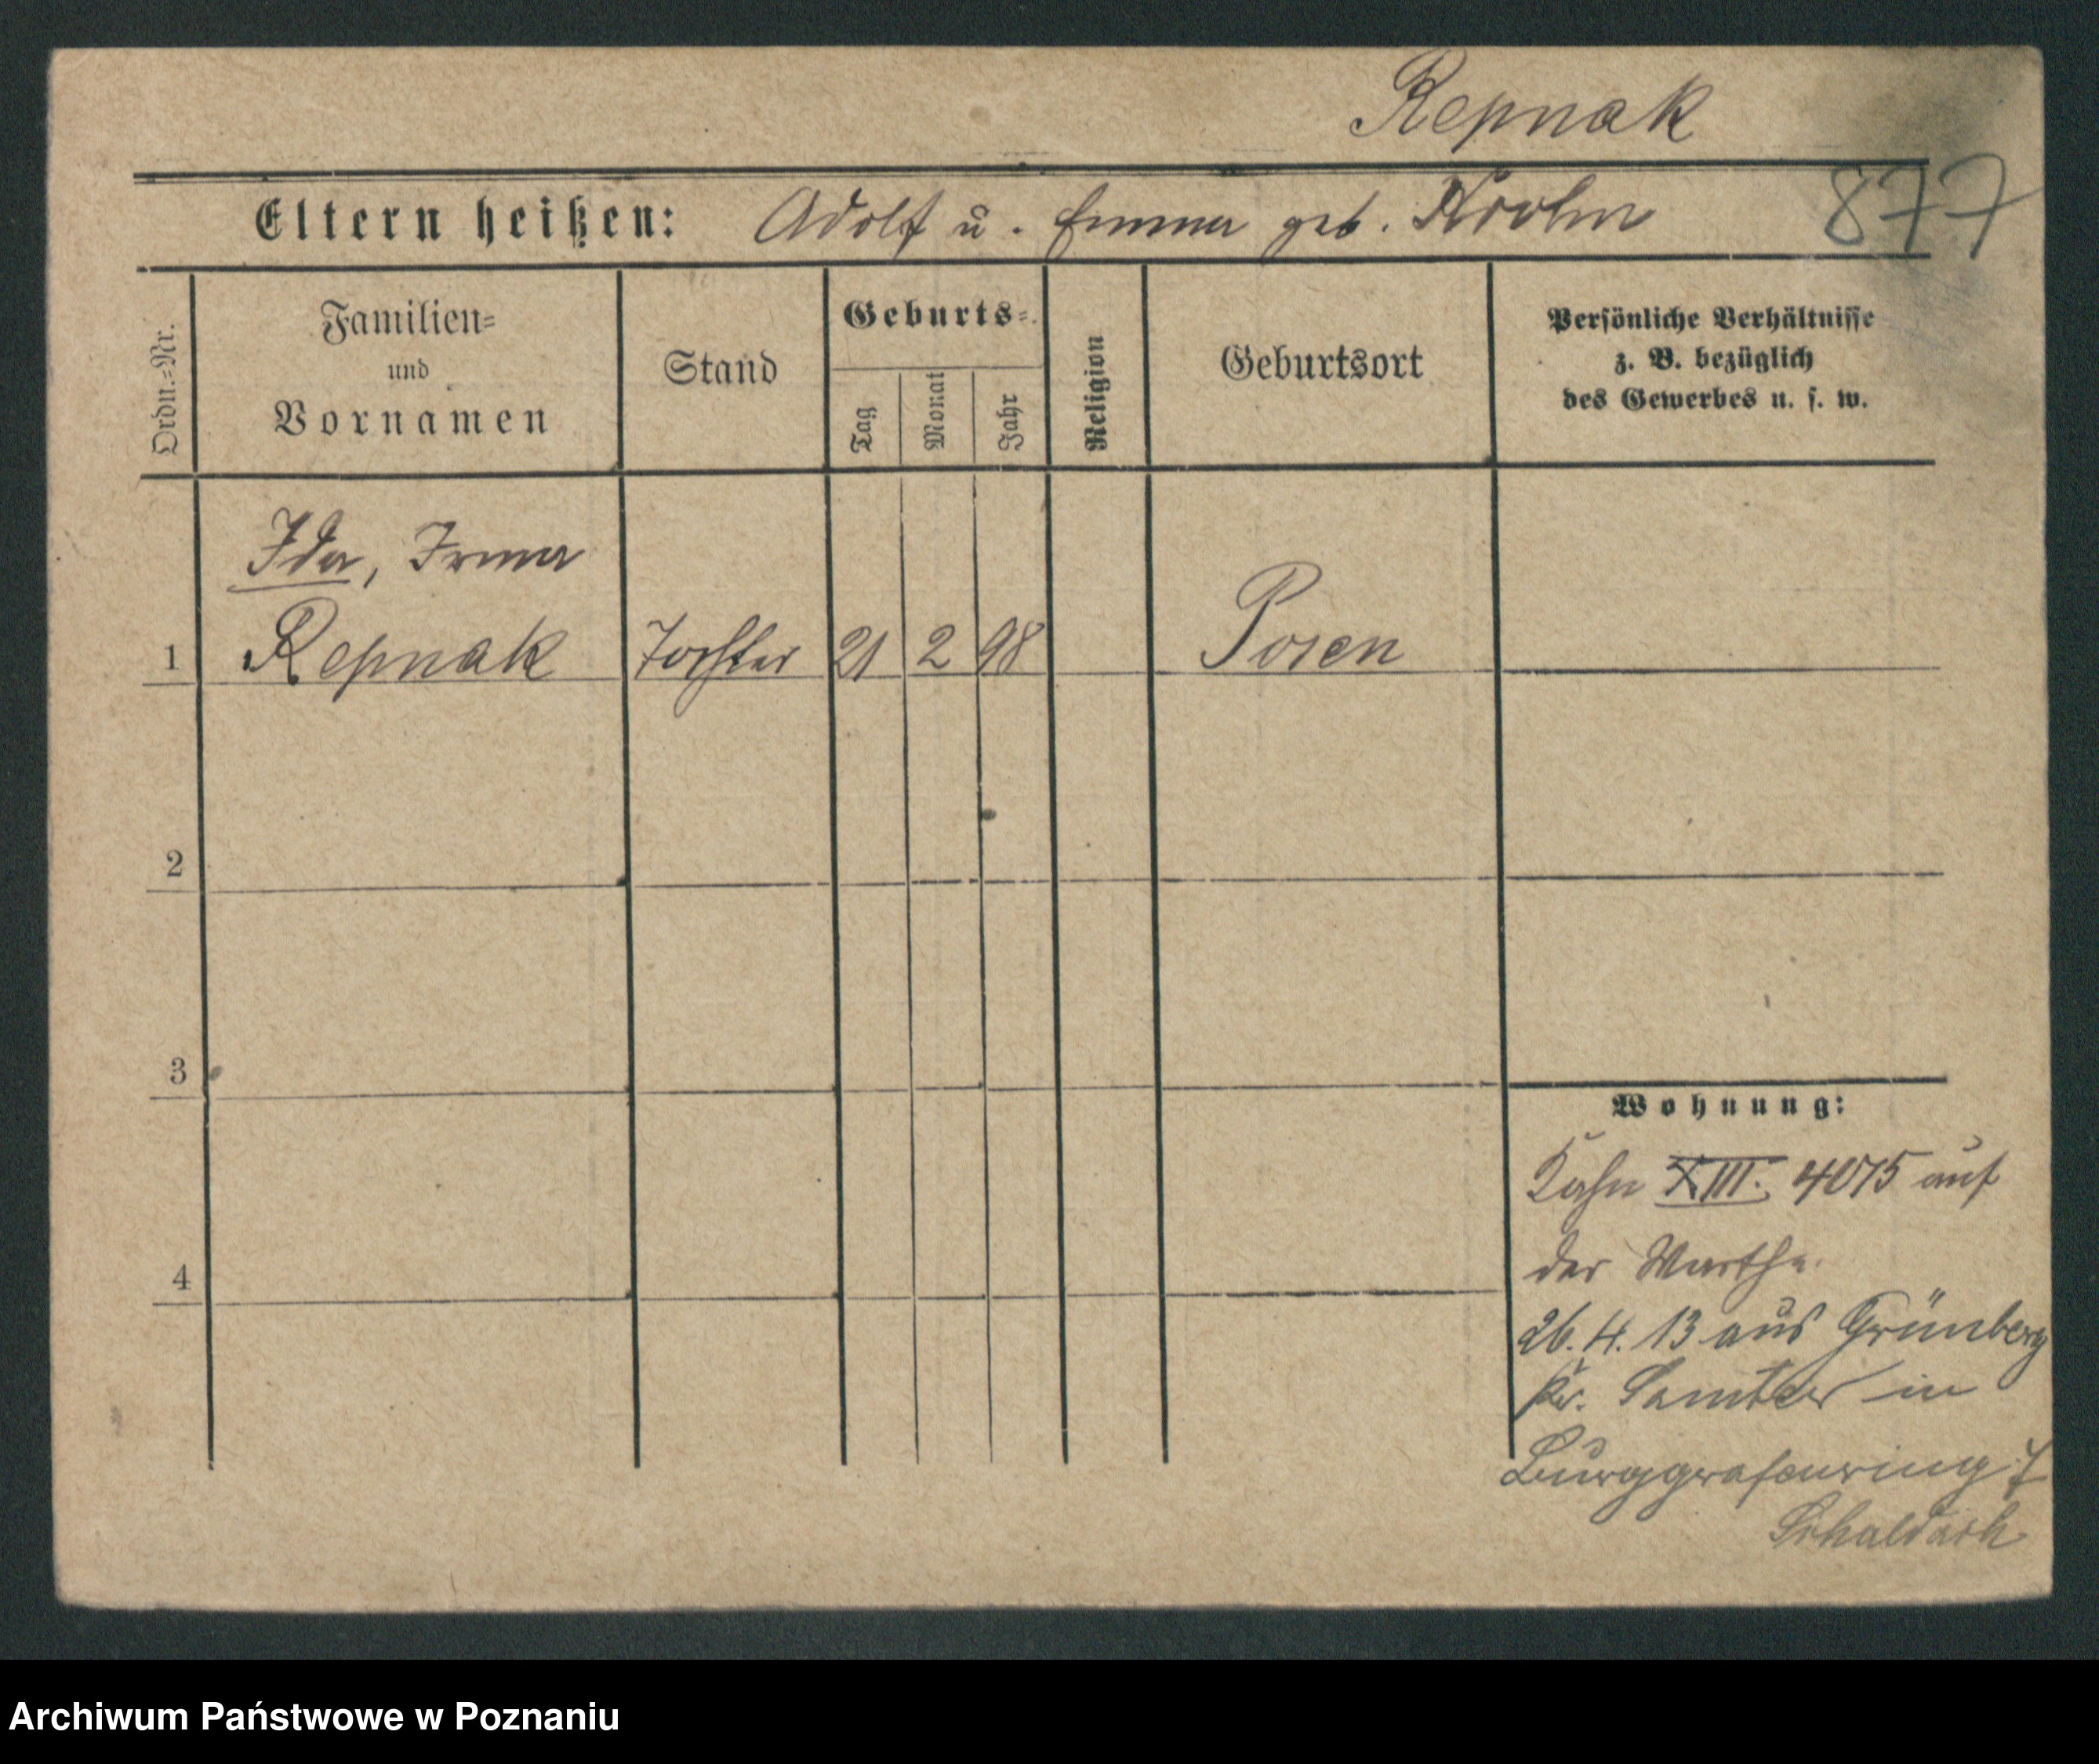 Repnak
Eltern heißen: Adolf u. Emma geb. Krohn 877
Ordn.-Nr.
Familien-
und
Vornamen
Stand
Geburts-
Tag
Monat
Jahr
Religion
Geburtsort
Persönliche Verhältnisse
z. B. bezüglich
des Gewerbes u. s. w.
Ida, Irma
1 Repnak Tochter 21 2 98 Posen
2
3
4
Wohnung:
Kahn XIII. 4075 auf
der Warthe.
26. 4. 13 aus Grünberg
Kr. Samter in
Burggrafenring 7
Archiwum Państwowe w Poznaniu